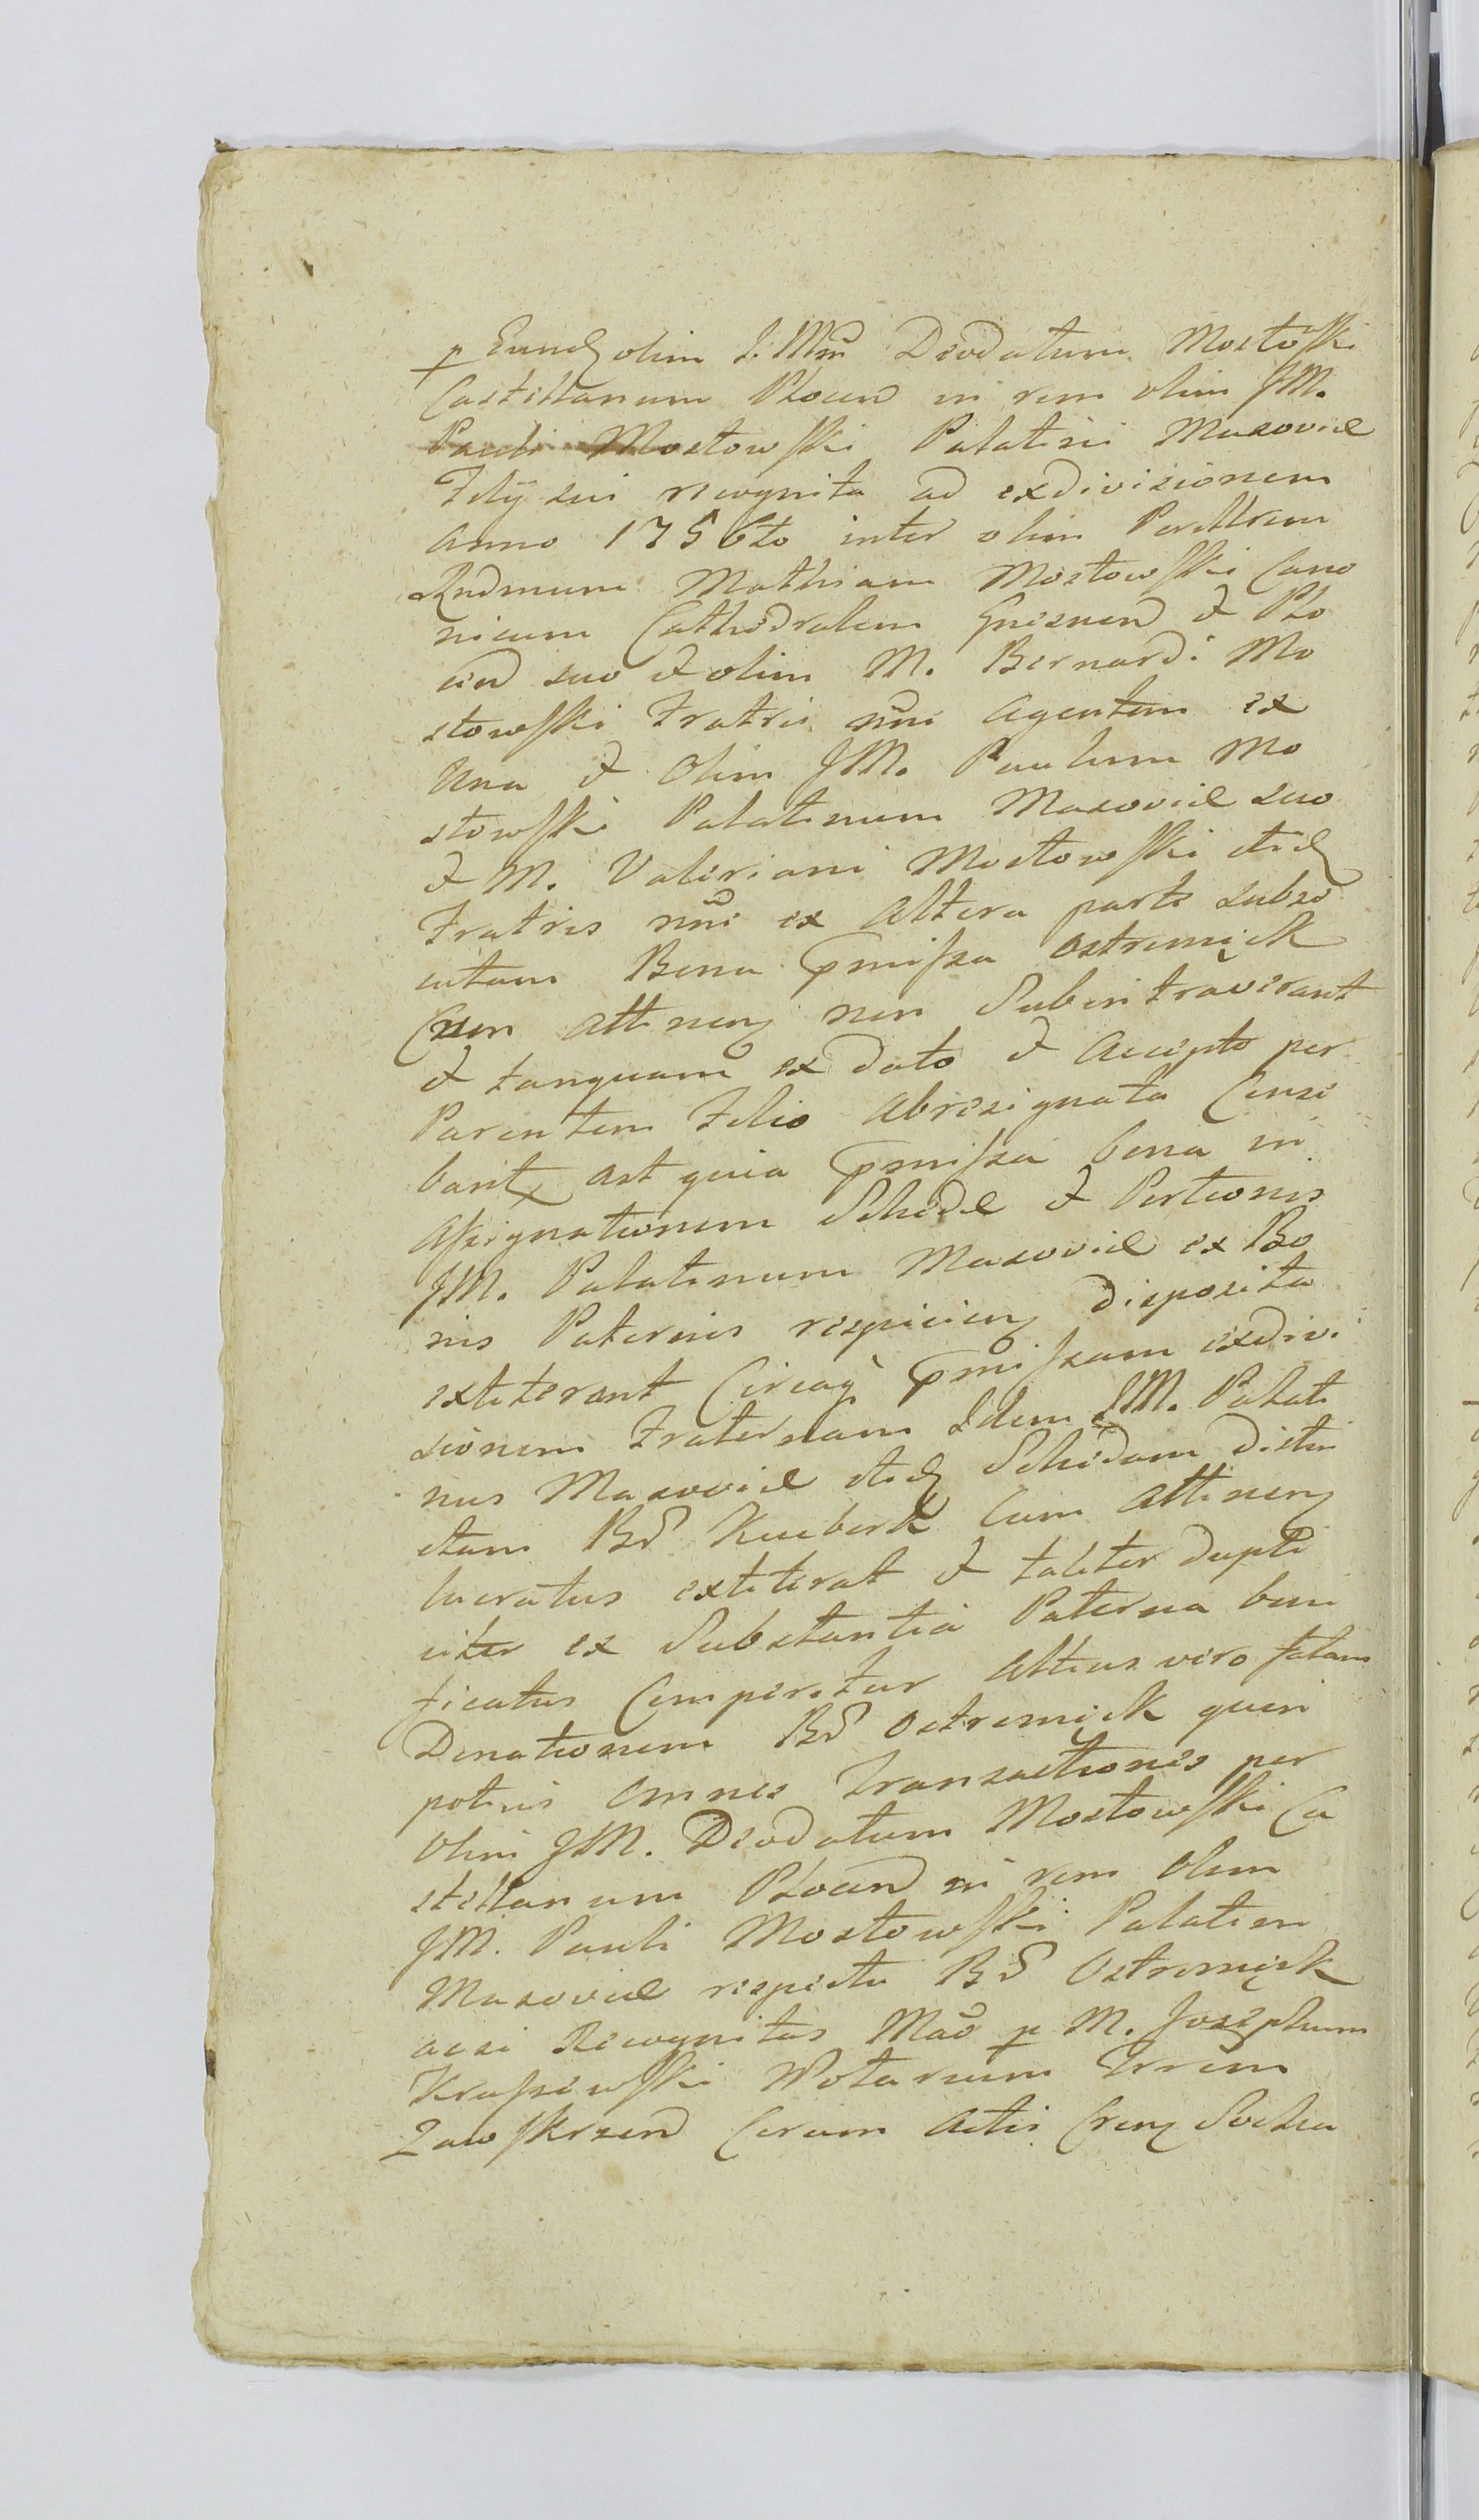 p Eund olim J. Mm Deodatum Mostoski
Castellanum Plocen in rem olim JM.
Pauli Mostowski Palatini Masoviæ
Filÿ sui recognita ad exdivisionem
Anno 1756to inter olim Perillrem
Rndmum Mathiam Mostowski Cano
nicum Cathedralem Gnesnen & Plo
cen suo & olim M. Bernardi Mo
stowski Fratris nni agentem ex
Una & Olim JM. Paulum Mo
stowski Palatinum Masoviæ suo
& M. Valeriani Mostowski itid
Fratris nni ex Altera parte subse
cutam Bona pmissa Ostromięck
Cum Attinen non Subintraverant
& tanquam ex dato & Accepto per
Parentem Filio Abresignata Cense
bant, ast quia pmissa bona in
Assignationem Schedæ & Portionis
JM. Palatinum Masoviæ ex Bo
nis Paternis respicien disposita
extiterant Circaq pmissam exdivi
sionem Fraternam Idem JM. Palati
nus Masoviæ itid Schedam distin
ctam Br Kuberk Cum Attinen
lucratus extiterat & taliter dupli
citer ex Substantia Paterna bene
ficatus Comperitur Altius vero
Donationem Br Ostromięck quin
potius Omnes Transactiones per
Olim JM. Deodatum Mostowski Ca
stellanum Plocen in rem Olim
JM. Pauli Mostowski Palatini
Masoviæ respectu Br Ostromięck
acsi Recognitas p M. Josephum
Krassewski Notarium Trrem
Zawskrzen Coram Actis Cren Socha